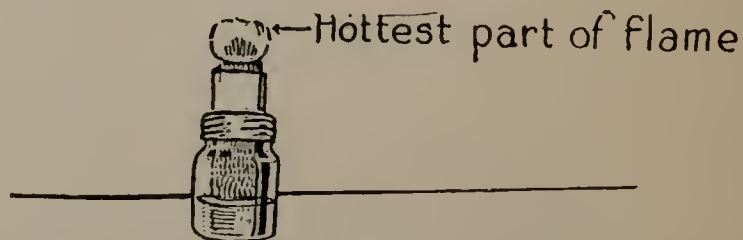 Hottest part of flame